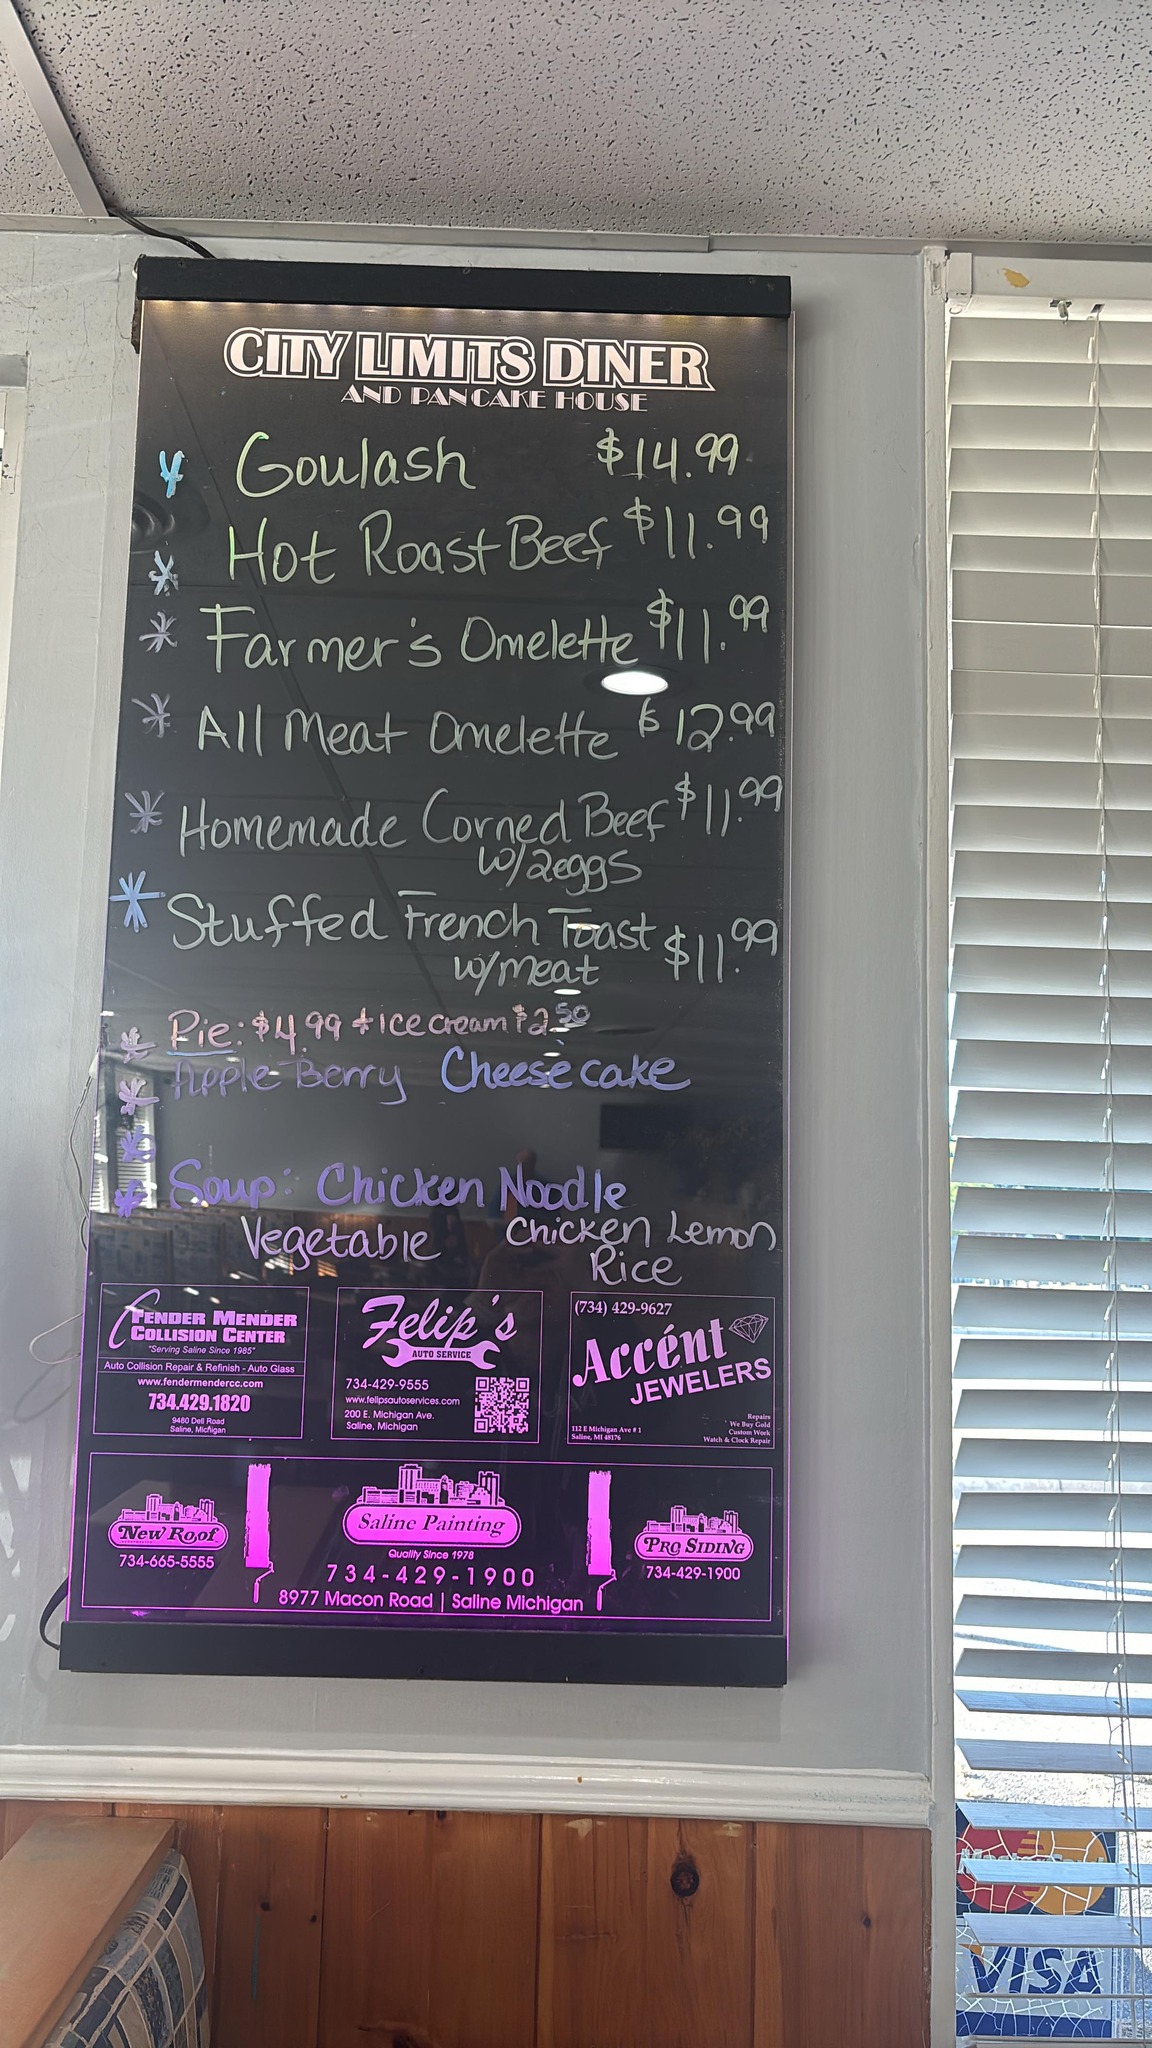 CITY LIMITS DINER
AND PANCAKE HOUSE
* Goulash $14.99
* Hot Roast Beef $11.99
* Farmer's Omelette $11.99
* All Meat Omelette $12.99
* Homemade Corned Beef $11.99
w/2eggs
* Stuffed French Toast $11.99
w/meat
* Pie: $4.99 + Ice cream $2.50
* Apple-Berry Cheesecake
*
* Soup: Chicken Noodle
Vegetable Chicken Lemon
Rice
FENDER MENDER
COLLISION CENTER
"Serving Saline Since 1985"
Auto Collision Repair & Refinish - Auto Glass
www.fendermendercc.com
734.429.1820
9480 Dell Road
Saline, Michigan
Felip's
AUTO SERVICE
734-429-9555
www.felipsautoservices.com
200 E. Michigan Ave.
Saline, Michigan
(734) 429-9627
Accént
JEWELERS
Repairs
We Buy Gold
Custom Work
Watch & Clock Repair
112 E Michigan Ave # 1
Saline, MI 48176
New Roof
734-665-5555
Saline Painting
Quality Since 1978
734-429-1900
8977 Macon Road | Saline Michigan
PRO SIDING
734-429-1900
VISA